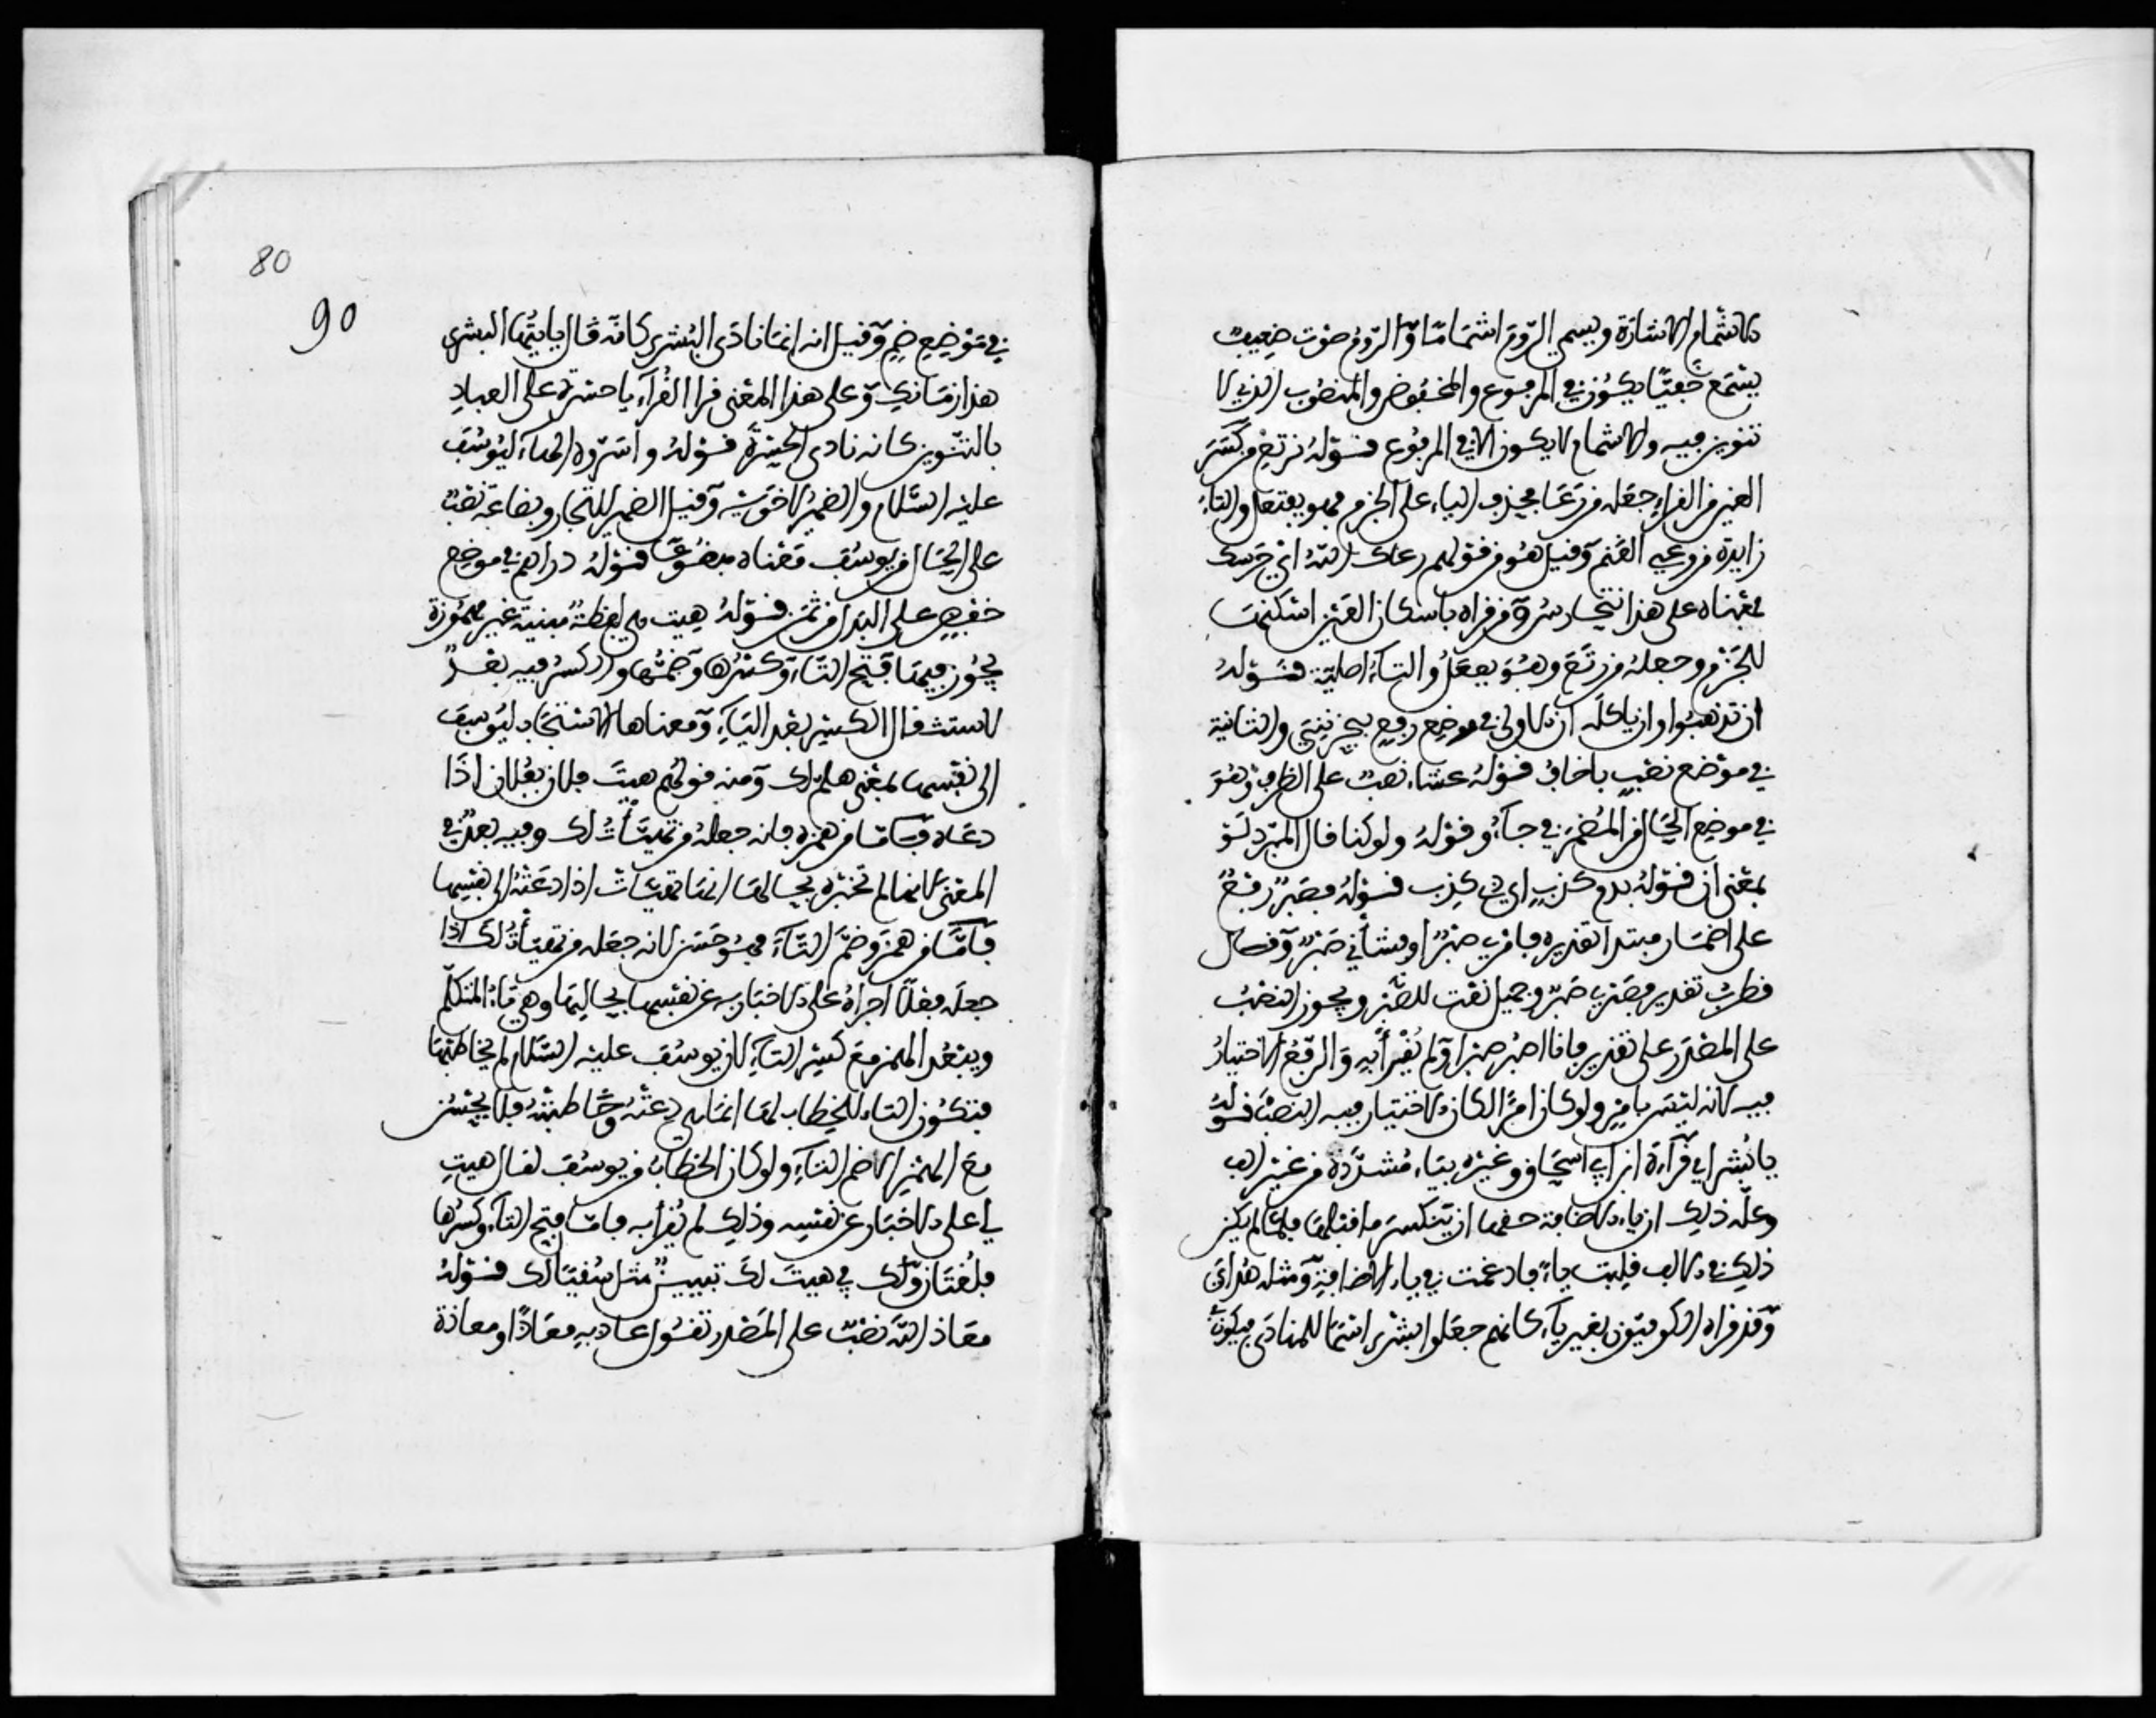 بالاشمام الاشارة ويسمي الروم اشماما والروم صوت ضعيف
يسمع خفيا يكون في المرفوع والمخفوض والمنصوب الذي لا
تنوين فيه والاشمام لا يكون الا في المرفوع قوله نرتع من كسر
العين من القراء جعله من رعا فحذف الياء على الجزم فهو يفتعل والتاء
زايدة من رعي الغنم وقيل هو من قولهم رعاك الله اي حرسك
فمعناه على هذا نتحارس ومن قراه باسكان العين اسكنها
للجزم وجعله من رتع وهو يفعل والتاء اصلية قوله
ان تذهبوا وان ياكله ان الاولى في موضع رفع بيحزنني والثانية
في موضع نصب باخاف قوله عشاء نصب على الظرف وهو
في موضع الحال من المضمر في جاءو وقوله ولو كنا قال المبرد لو
بمعنى ان قوله بدم كذب اي ذي كذب قوله فصبر رفع
على اضمار مبتدا تقديره فامري صبر او شأني صبر وقال
قطرب تقديره فصبري صبر وجميل نعت للصبر ويجوز النصب
على المصدر على تقدير فانا اصبر صبرا ولم يقرأ به والرفع الاختيار
فيه لانه ليس بامر ولو كان امرا لكان الاختيار فيه النصب قوله
يا بشراي قرآءة ابن ابي اسحاق وغيره بياء مشددة من غير الف
وعلة ذلك ان ياء الاضافة حقها ان ينكسر ما قبلها فلما لم يكن
ذلك في الالف قلبت ياء فادغمت في ياء الاضافة ومثله هداي
وقد قراه الكوفيون بغير ياء كانهم جعلوا بشرى اسما للمنادى فيكون
80
90
في موضع ضم وقيل انه انما نادى البشرى كانه قال يايتها البشرى
هذا زمانك وعلى هذا المعنى قرا القرآء يا حسرة على العباد
بالتنوين كانه نادى الحسرة قوله واسروه الهاء ليوسف
عليه السلام والضمير لاخوته وقيل الضمير للتجار وبضاعة نصب
على الحال من يوسف معناه مبضوعا قوله دراهم في موضع
خفض على البدل من ثمن قوله هيت هي لفظة مبنية غير مهموزة
يجوز فيها فتح التاء وكسرها وضمها والكسر فيه بعد
لاستثقال الكسر بعد الياء ومعناها الاستنجاد ليوسف
الى نفسها بمعنى هلم لك ومنه قولهم هيت فلان بفلان اذا
دعاه فاما من همزه فانه جعله من تهيأت لك وفيه بعد في
المعنى لانها لم تخبره بحالها انها تهيأت اذا دعته الى نفسها
فاما من همز وضم التاء فهو حسن لانه جعله من تهيأت لك اذا
جعله فعلا اجراه على الاخبار به عن نفسها بحالها وهي تاء المتكلم
ويبعد الهمز مع كسر التاء لان يوسف عليه السلام لم يخاطبها
فتكون التاء للخطاب لها انما هي دعته وخاطبته فلا يحسن
مع الهمز الا ضم التاء ولو كان الخطاب من يوسف لقال هيت
لي على الاخبار عن نفسه وذلك لم يقرأ به فاما فتح التاء وكسرها
فلغتان ولك في هيت لك تبيين مثل سقيا لك قوله
معاذ الله نصب على المصدر تقول عاذ به معاذا ومعاذة